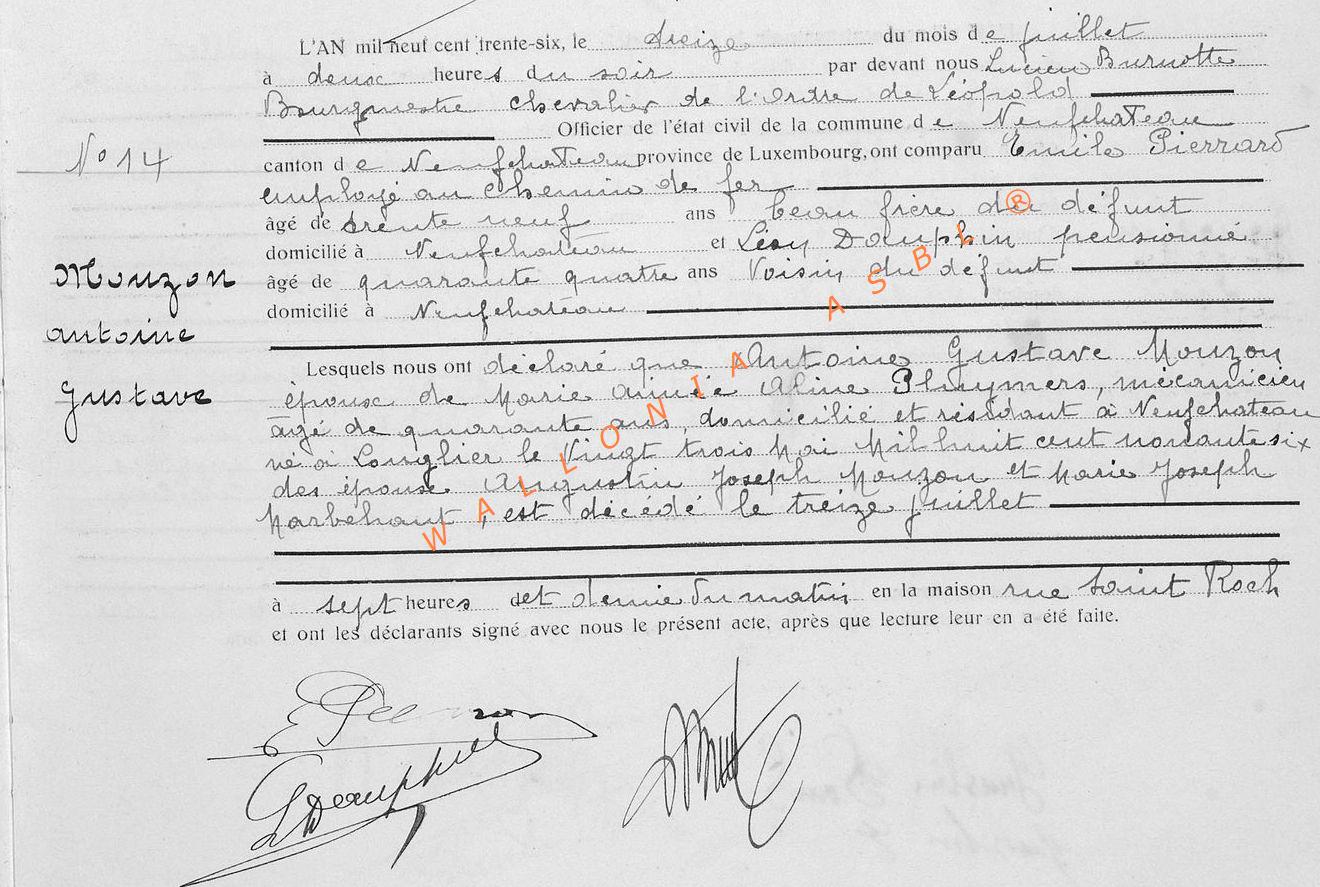 L'AN mil neuf cent trente-six, le treize du mois de juillet
à deux heures du soir par devant nous Lucien Burnotte
Bourgmestre chevalier de l'Ordre de Léopold
Officier de l'état civil de la commune de Neufchateau
N° 14
canton de Neufchateau province de Luxembourg, ont comparu Emile Pierrard
employé au chemin de fer
âgé de trente neuf ans beau frère du défunt
domicilié à Neufchateau et Léon Dauphin pensionné
Mouzon
âgé de quarante quatre ans Voisin du défunt
domicilié à Neufchateau
antoine
Lesquels nous ont déclaré que Antoine Gustave Mouzon
Gustave
époux de Marie Aimée Aline Pluymers, mécanicien
âgé de quarante ans, domicilié et résidant à Neufchateau
né à Longlier le Vingt trois Mai Mil huit cent nonante six
des époux Augustin Joseph Mouzon et Marie Joseph
Marbehant, est décédé le treize juillet
WALLONIA ASBL ®
à sept heures et demie du matin en la maison rue Saint Roch
et ont les déclarants signé avec nous le présent acte, après que lecture leur en a été faite.
LDauphin